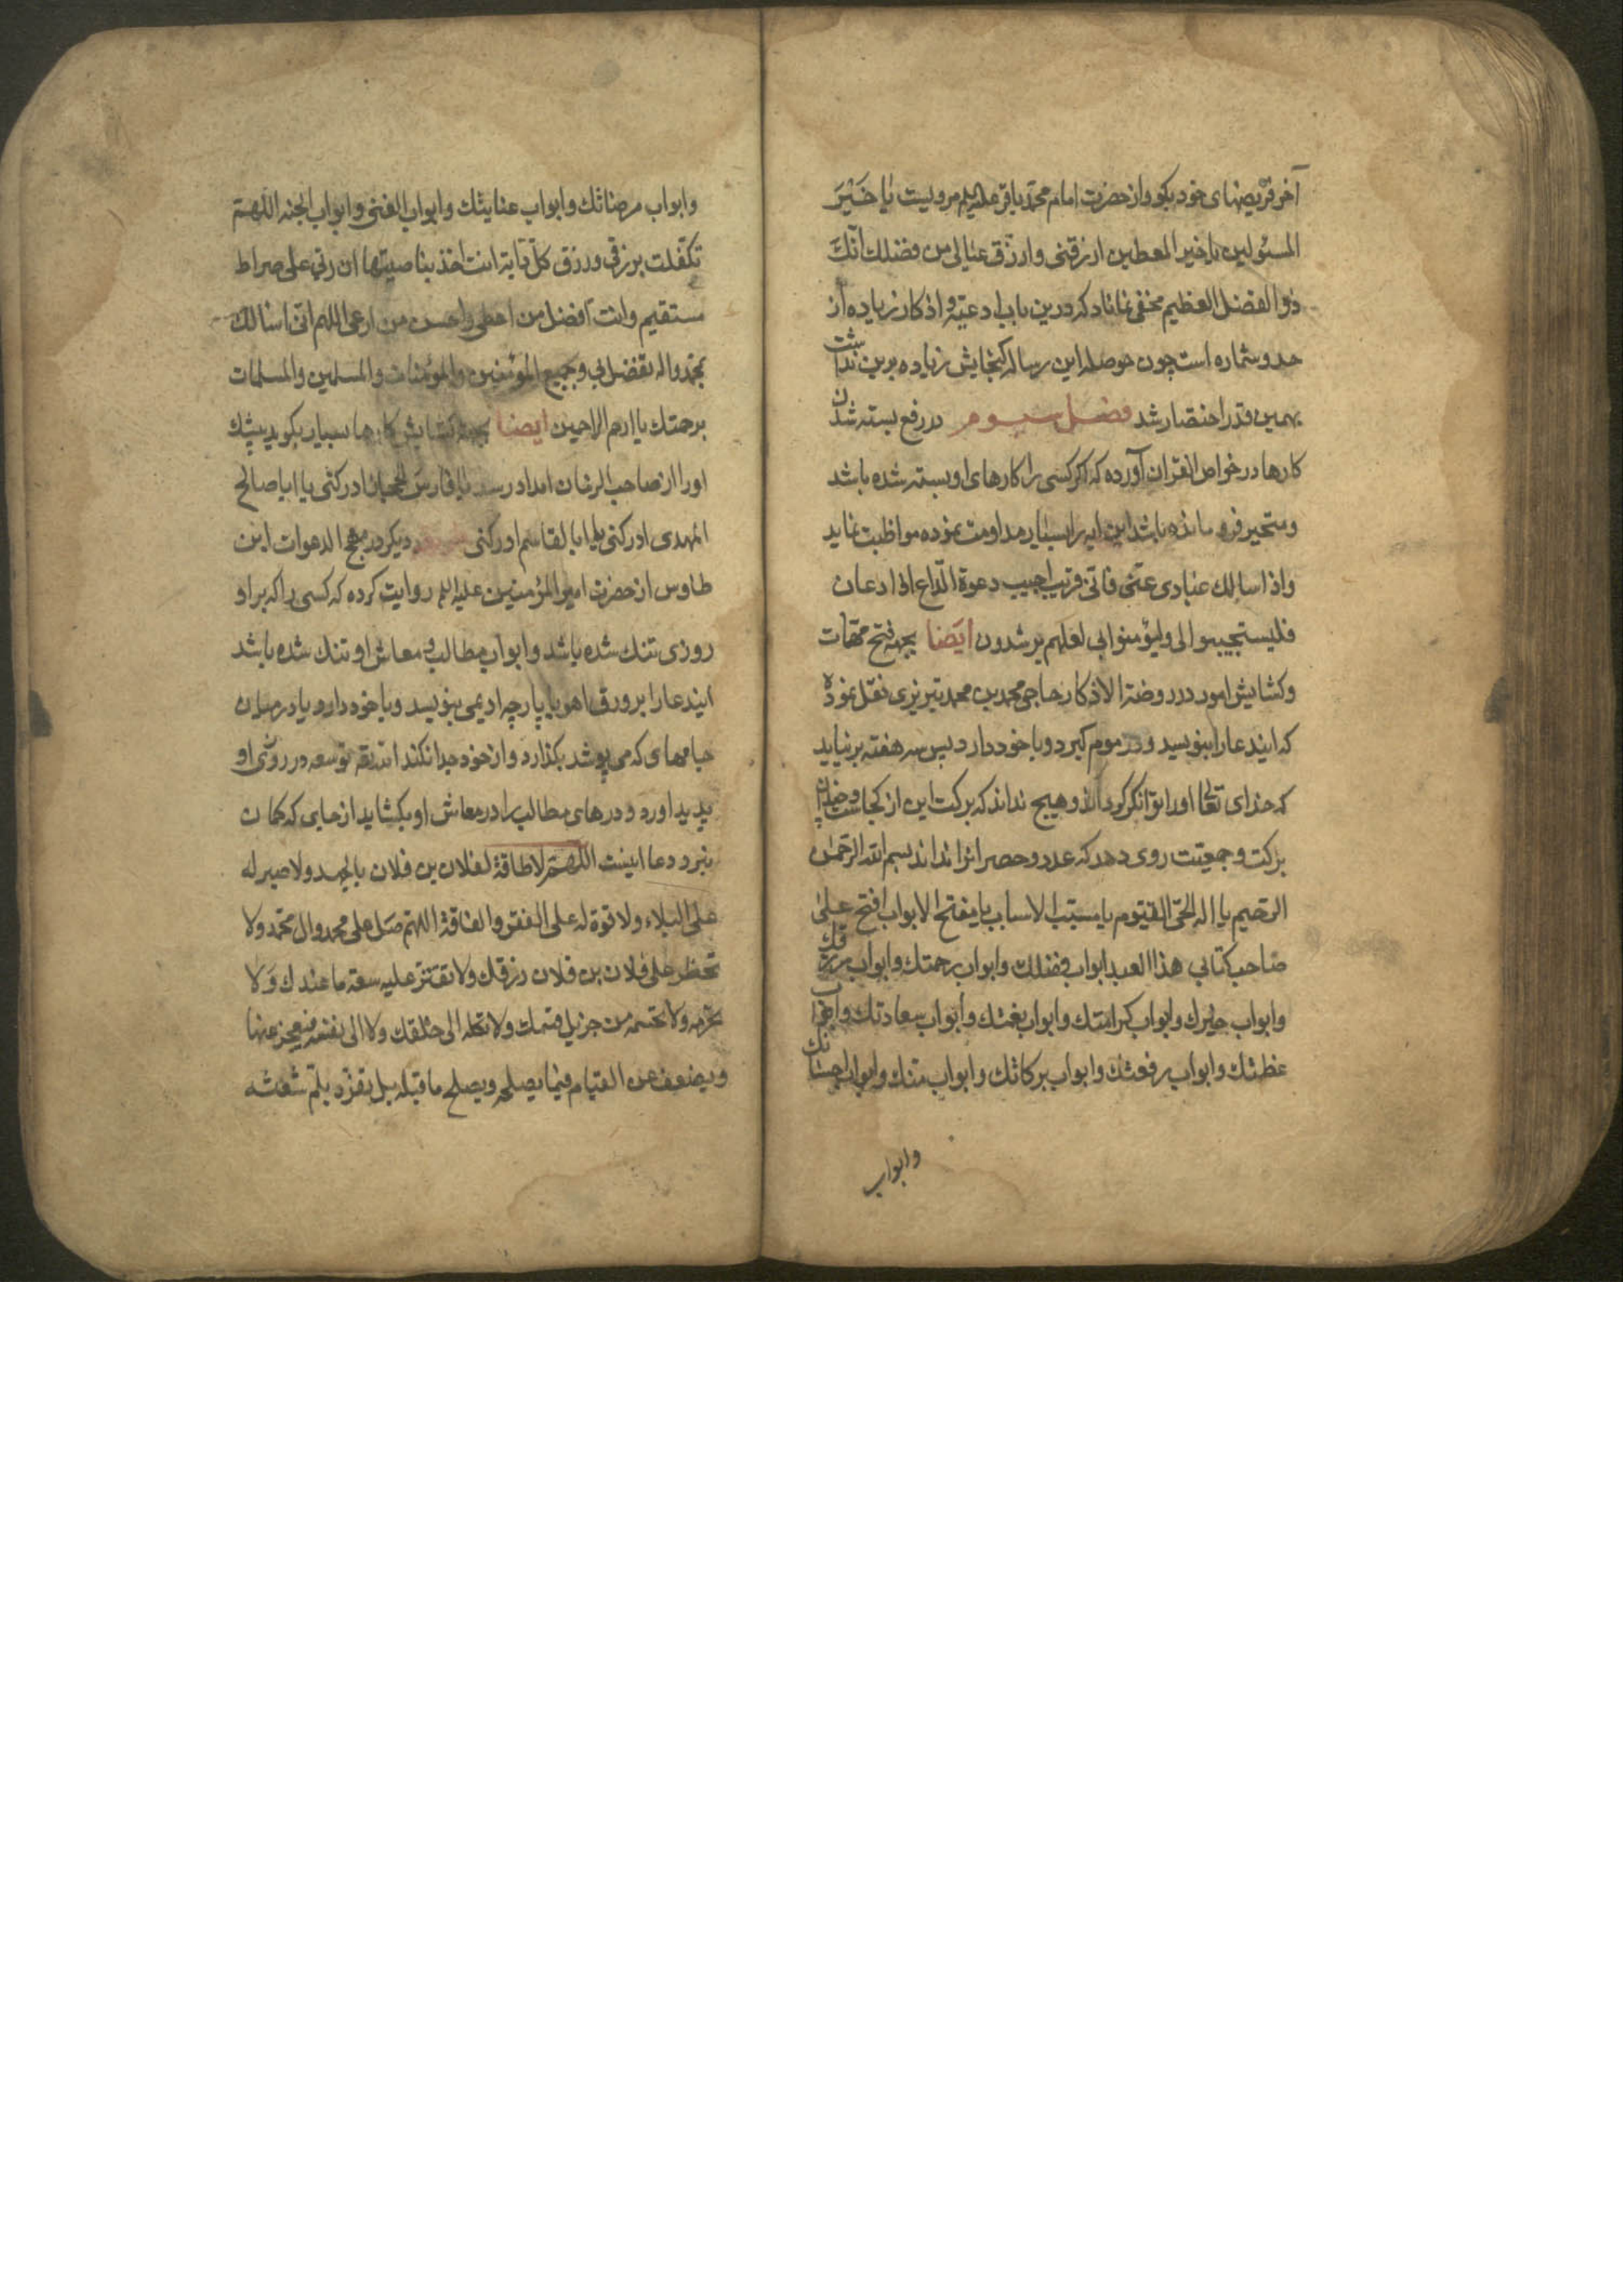 آخر فریضهای خود بکو واز حضرت امام محمد باقر علیه السلم مرویست یا خَیْرَ
المسئولین یا خیر المعطین ارزقنی وارزق عیالی من فضلك انّكَ
ذو الفضل العظیم مخفی نماناد که درین باب ادعیّة و اذکار زیاده از
حد و شماره است چون حوصله این رساله کنجایش زیاده برین نداشت
بهمین قدر اختصار شد فصل سیوم در رفع بسته شدن
کارها در خواص القران آورده که اکر کسی را کارهای او بسته شده باشد
و متحیر فرو مانده باشد این ایه را بسیار مداومت نموده مواظبت نماید
واذا سالك عبادی عنّی فانّی قریب اجیب دعوة الدّاع اذا دعان
فلیستجیبوا لی ولیؤمنوا بی لعلهم یرشدون ایضا بجهة فتح مهمّات
وکشایش امور در روضة الاذکار حاجی محمد بن محمد تبریزی نقل نموده
که ایندعا را بنویسید و در موم کیرد و با خود دارد پس سه هفته برنیاید
که خدای تعالی اورا توانکر کرداند و هیچ نداند که برکت این از کجاست وچندان
برکت و جمعیّت روی دهد که عدد و حصر انرا نداند بسم الله الرّحمن
الرّحیم یا اله الحیّ القیّوم یا مسبّب الاسباب یا مفتّح الابواب افتح علیٰ
صاحب کتابی هذا العبد ابواب فضلك وابواب رحمتك وابواب رزقك
وابواب خیرك وابواب کرامتك وابواب نعمتك وابواب سعادتك وابواب
عظمتك وابواب رفعتك وابواب برکاتك وابواب منّك وابواب احسانك
وابواب
وابواب مرضاتك وابواب عنایتك وابواب الغنی وابواب الجنه اللهمّ
تکفّلت برزقی ورزق کلّ دابّة انت اخذ بناصیتها ان ربّی علی صراط
مستقیم وانت افضل من اعطی واحسن من ارعی اللهم انی اسالك
بمحمد واله تفضل لی و جمیع المؤمنین والمؤمنات والمسلمین والمسلمات
برحمتك یا ارحم الراحمین ایضا بجهة کشایش کارها بسیار بکوید بیشك
اورا از صاحب الزمان امداد رسد یا فارس الحجاز ادرکنی یا ابا صالح
المهدی ادرکنی یا ابا القاسم ادرکنی دیکر در مهج الدعوات ابن
طاوس از حضرت امیر المؤمنین علیه السلم روایت کرده که کسی را که بر او
روزی تنك شده باشد و ابواب مطالب و معاش او تنك شده باشد
ایندعا را بر ورق اهو یا پارچه ادیمی بنویسد و با خود دارد یا در میان
جامهای که می پوشد بکذارد و از خود جدا نکند الله توسعه در روزی او
پدید اورد و درهای مطالب را در معاش او بکشاید از جایی که کمان
نبرد دعا اینست اللهمّ لا طاقة لفلان بن فلان بالجهد ولا صبر له
علی البلاء ولا قوة له علی الفقر والفاقة اللهم صلّ علی محمد وال محمّد ولا
تحظر علی فلان بن فلان رزقك ولا تقتر علیه سعة ما عندك وَلا
تحرمه ولا تحسمه من جزیل قسمك ولا تکله الی خلقك ولا الی نفسه فیعجز عنها
ویضعف عن القیام فیما یصلحه ویصلح ما قبله بل تفرّد بلمّ شعثه